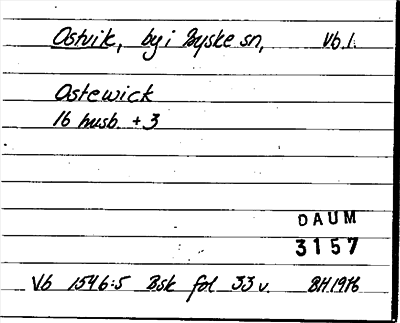 Ostvik, by i Byske sn, Vb.l.
Ostewick
16 husb. + 3
DAUM
3157
Vb 1546:5 Bsk fol 33 v. BH 1976